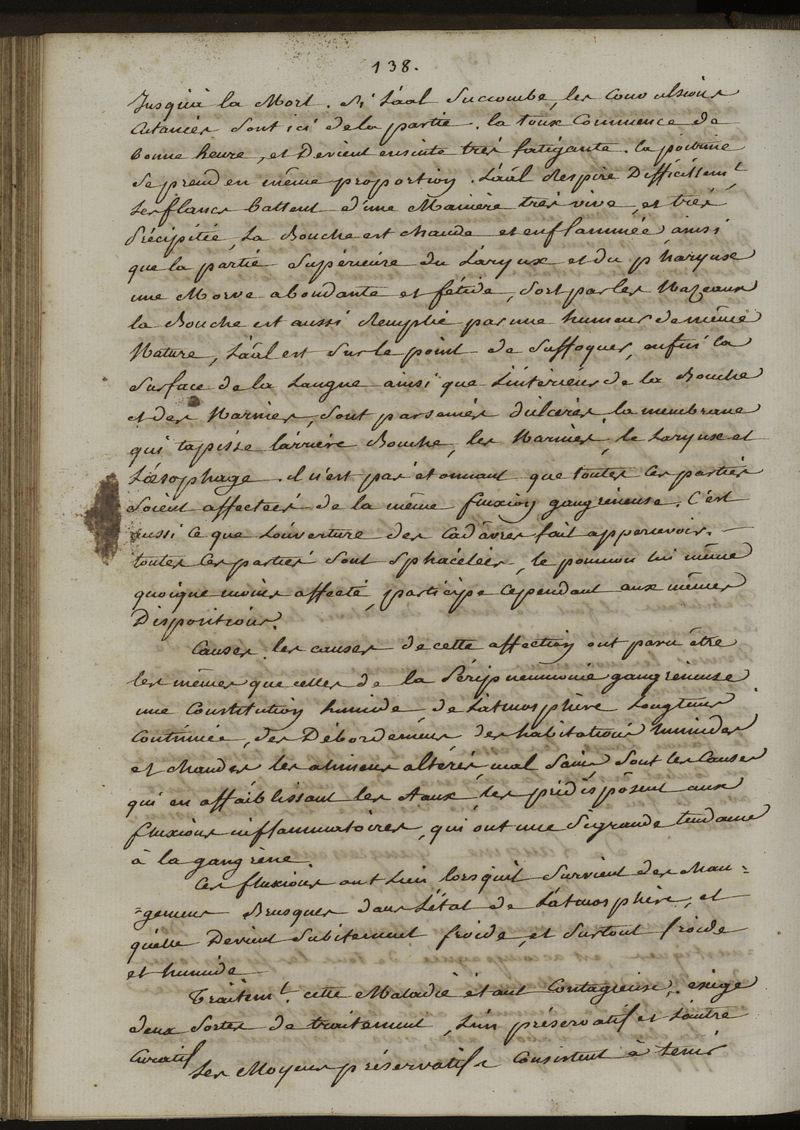 138.
Jusqu'à la Mort. Si L'aal Succombe, les Convulsions
tétaniés Sont ici de la partie. la toux Commence de
bonne heure, et Devient ensuite très fatigante. la poitrine
Se prend en même proportion. L'aâl Respire Difficilemt.
Les flancs battent d'une Manière très vive et très
Précipitée, La Bouche est chaude et enflammée, ainsi
que la partie Supérieure du Larynx et du pharynx
une Morve abondante et fétide, Sort par les Nazeaux
la Bouche est aussi Remplie par une humeur de même
Nature, L'aâl est Sur le point de Suffoquer, enfin la
Surface de la Langue ainsi que L'intérieur de la Bouche
et des Narines, Sont parsemés d'ulcères la membrane
qui tapisse l'arrière Bouche, les Narines, le Larynx et
L'œsophage. il n'est pas étonnant que toutes ces parties
Soient affectées de la même fluxion gangreneuse. C'est
aussi ce que L'ouverture des Cadâvres fait appercevoir. —
toutes Ces parties Sont Sphacélées, le poumon lui même
quoique moins affecté, participe cependant aux mêmes
Dispositions.
Causes. les causes de cette affection ont paru être
les mêmes que celles de la Péripneumonie gangreneuse
une Constitution humide, de L'atmosphère Longtems
Continuée, des Débordemens des habitations humides
et chaudes les alimens altérés, mal Sains Sont les Causes
qui en affaiblissant les Aaux les prédisposent aux
fluxions inflammatoires, qui ont une Si grande tendance
à la gangrène.
Ces fluxions ont Lieu lorsqu'il Survient des chan=
=gemens Brusques dans L'état de L'atmosphère, et
qu'elle Devient Subitement froide, et Surtout froide
et humide
Traitemt. cette Maladie étant Contagieuse, exige
deux Sortes de traitement, L'un préservatif et L'autre
Curatif
Les Moyens préservatifs Consistent à tenir